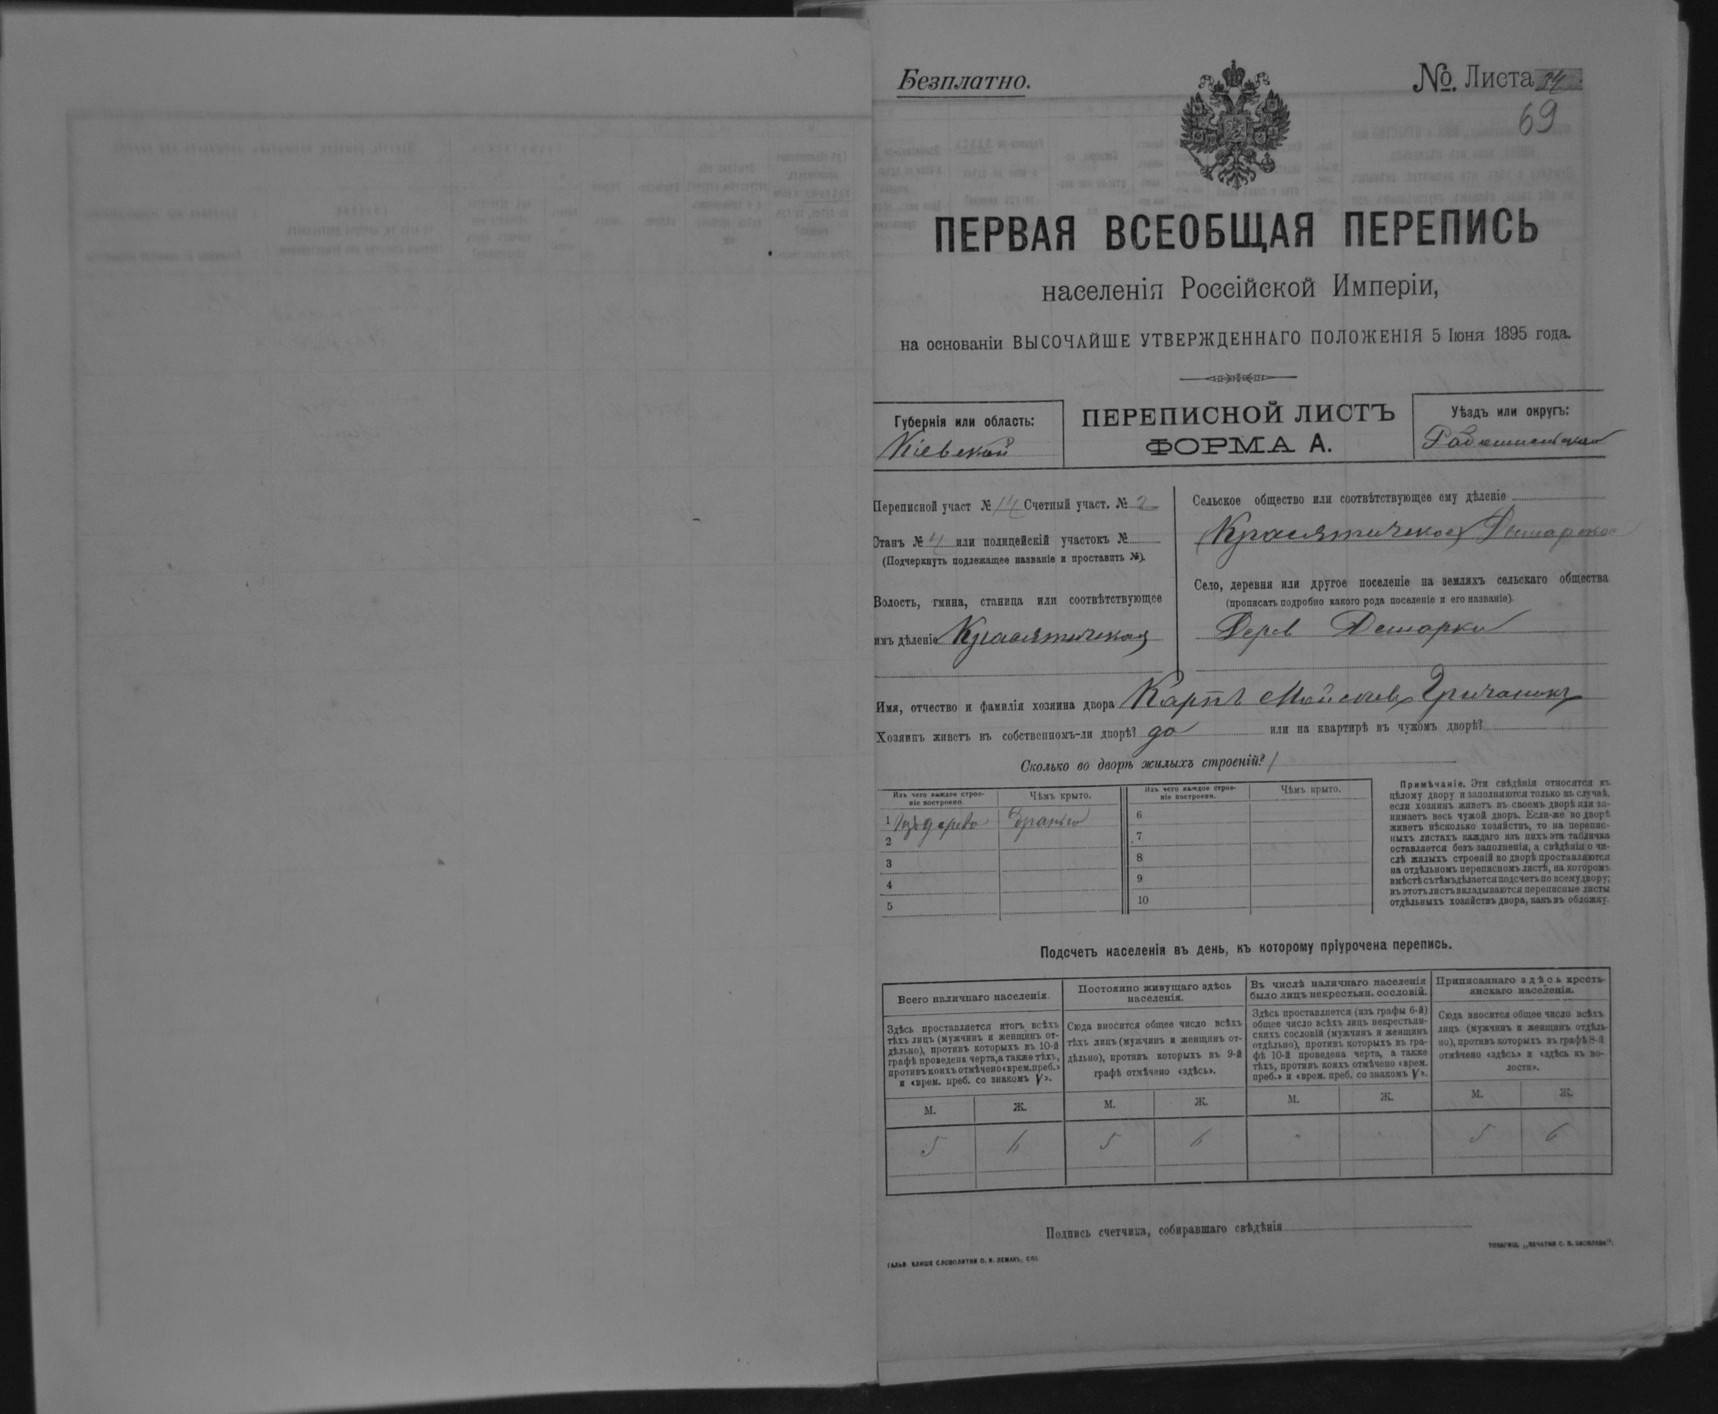 Безплатно.
№. Листа 34
69
ПЕРВАЯ ВСЕОБЩАЯ ПЕРЕПИСЬ
населенія Россійской Имперіи,
на основаніи ВЫСОЧАЙШЕ УТВЕРЖДЕННАГО ПОЛОЖЕНІЯ 5 Іюня 1895 года.
Губернія или область:
Кіевской
ПЕРЕПИСНОЙ ЛИСТЪ
ФОРМА А.
Уѣздъ или округъ:
Переписной участ № 14 Счетный участ. № 2
Станъ № 4 или полицейскій участокъ №
(Подчеркнуть подлежащее названіе и проставить №).
Волость, гмина, станица или соотвѣтствующее
имъ дѣленіе Красятичская
Сельское общество или соотвѣтствующее ему дѣленіе
Село, деревня или другое поселеніе на земляхъ сельскаго общества
(прописать подробно какого рода поселеніе и его названіе).
Дерев
Имя, отчество и фамилія хозяина двора Карпъ Мойсеев
Хозяинъ живетъ въ собственномъ-ли дворѣ? да или на квартирѣ въ чужомъ дворѣ?
Сколько во дворѣ жилыхъ строеній? 1
Изъ чего каждое строе-
ніе построено.
Чѣмъ крыто.
Изъ чего каждое строе-
ніе построено.
Чѣмъ крыто.
1
2
3
4
5
6
7
8
9
10
Примѣчаніе. Эти свѣдѣнія относятся къ
цѣлому двору и заполняются только въ случаѣ,
если хозяинъ живетъ въ своемъ дворѣ или за-
нимаетъ весь чужой дворъ. Если-же во дворѣ
живетъ нѣсколько хозяйствъ, то на перепис-
ныхъ листахъ каждаго изъ нихъ эта табличка
оставляется безъ заполненія, а свѣдѣнія о чи-
слѣ жилыхъ строеній во дворѣ проставляются
на отдѣльномъ переписномъ листѣ, на которомъ
вмѣстѣ съ тѣмъ дѣлается подсчетъ по всему двору;
въ этотъ листъ вкладываются переписные листы
отдѣльныхъ хозяйствъ двора, какъ въ обложку.
Подсчетъ населенія въ день, къ которому пріурочена перепись.
Всего наличнаго населенія.
Здѣсь проставляется итогъ всѣхъ
тѣхъ лицъ (мужчинъ и женщинъ от-
дѣльно), противъ которыхъ въ 10-й
графѣ проведена черта, а также тѣхъ,
противъ коихъ отмѣчено «врем. преб.»
и «врем. преб. со знакомъ V».
Постоянно живущаго здѣсь
населенія.
Сюда вносится общее число всѣхъ
тѣхъ лицъ (мужчинъ и женщинъ от-
дѣльно), противъ которыхъ въ 9-й
графѣ отмѣчено «здѣсь».
Въ числѣ наличнаго населенія
было лицъ некрестьян. сословій.
Здѣсь проставляется (изъ графы 6-й)
общее число всѣхъ лицъ некрестьян-
скихъ сословій (мужчинъ и женщинъ
отдѣльно), противъ которыхъ въ гра-
фѣ 10-й проведена черта, а также
тѣхъ, противъ коихъ отмѣчено «врем.
преб.» и «врем. преб. со знакомъ V».
Приписаннаго здѣсь кресть-
янскаго населенія.
Сюда вносится общее число всѣхъ
лицъ (мужчинъ и женщинъ отдѣль-
но), противъ которыхъ въ графѣ 8-й
отмѣчено «здѣсь» и «здѣсь въ во-
лости».
М. Ж. М. Ж. М. Ж. М. Ж.
5 6 5 6 5 6
Подпись счетчика, собиравшаго свѣдѣнія